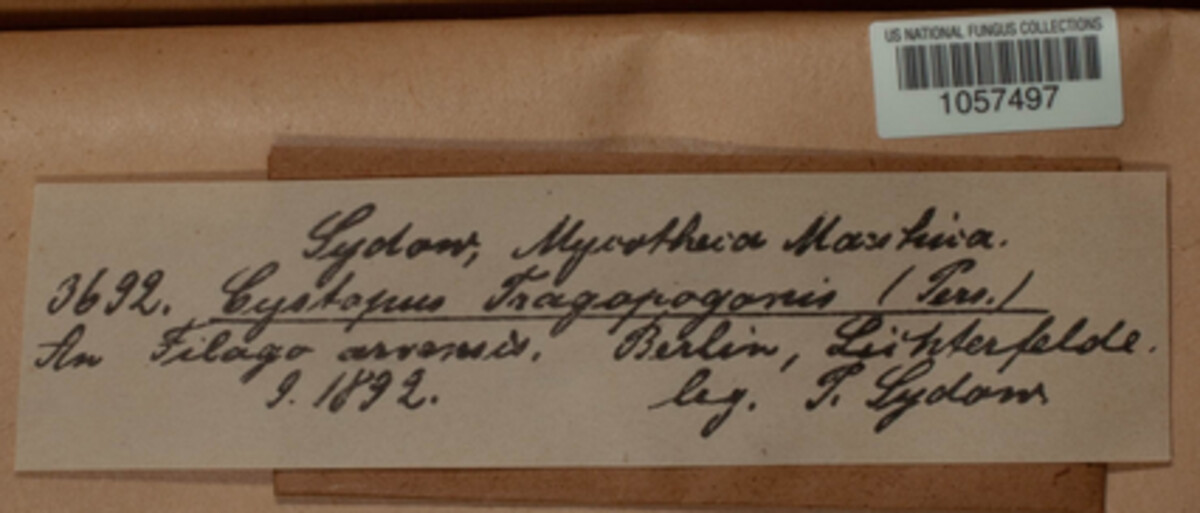 US NATIONAL FUNGUS COLLECTIONS
1057497
Sydow, Mycotheca Marchica.
3692. Cystopus Tragopogonis (Pers.)
An Filago arvensis. Berlin, Lichterfelde.
9. 1892. leg. P. Sydow.